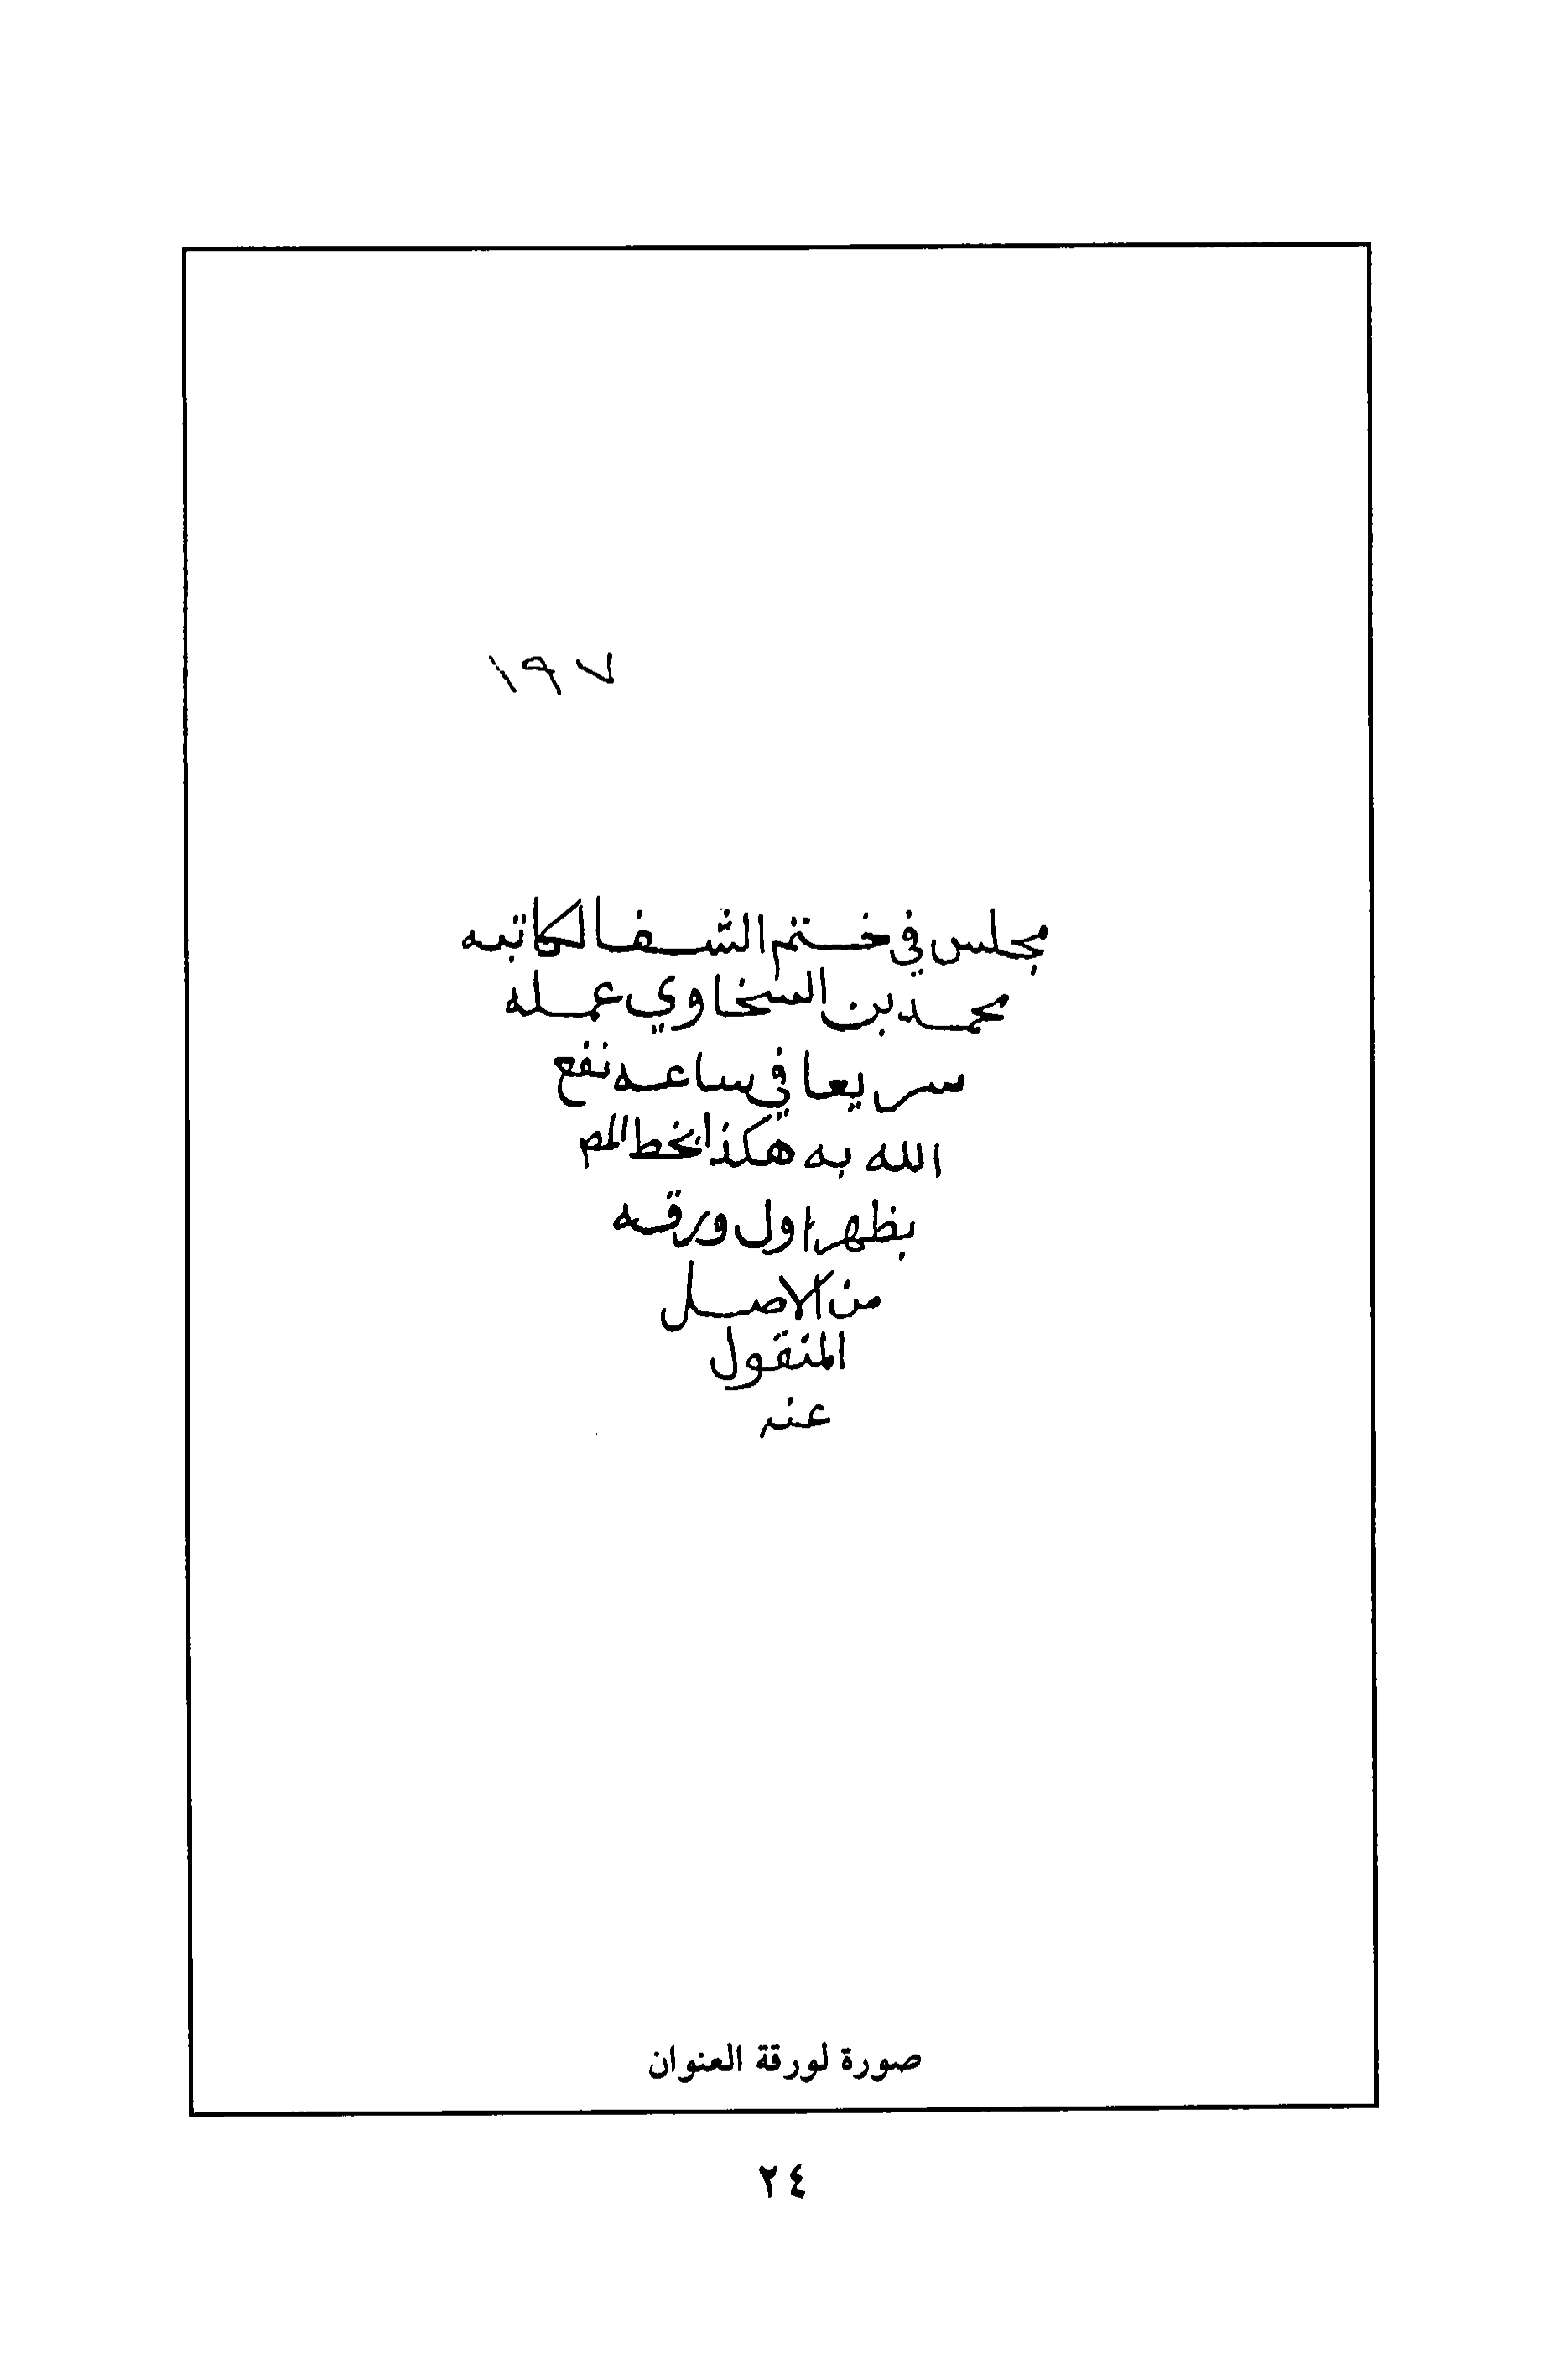 ١٩٧
مجلس في ختم الشفا لكاتبه
محمد بن السخاوي عمله
سريعا في ساعه نفع
الله به هكذا بخط المص
بظهر اول ورقه
من الاصل
المنقول
عنه
صورة لورقة العنوان
٢٤